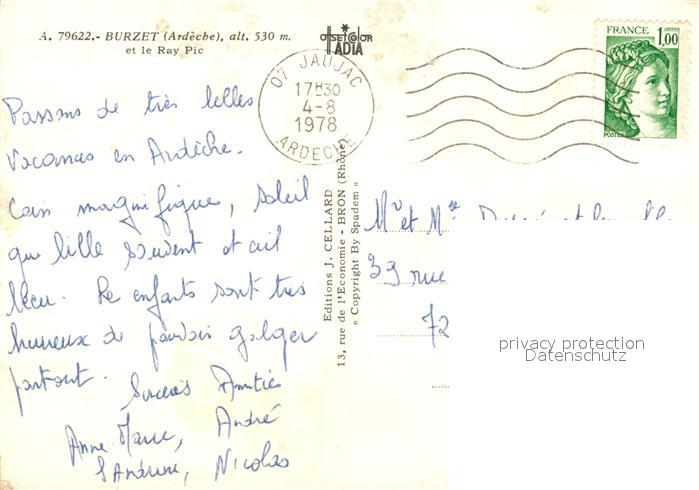 A. 79622.- BURZET (Ardèche), alt. 530 m.
et le Ray Pic
OFFSETCOLOR
IADIA
FRANCE
1,00
POSTES
07 JAUJAC
17H30
4-8
1978
ARDECHE
Passons de très belles
vacances en Ardèche.
Coin magnifique, soleil
qui brille souvent et ciel
bleu. Les enfants sont très
heureux de pouvoir galoper
partout.
Sincères Amitiés
Anne Marie, André
Sandrine, Nicolas
Editions J. CELLARD
13, rue de l'Economie - BRON (Rhône)
« Copyright By Spadem »
Mr et Mme
39 rue
72
privacy protection
Datenschutz